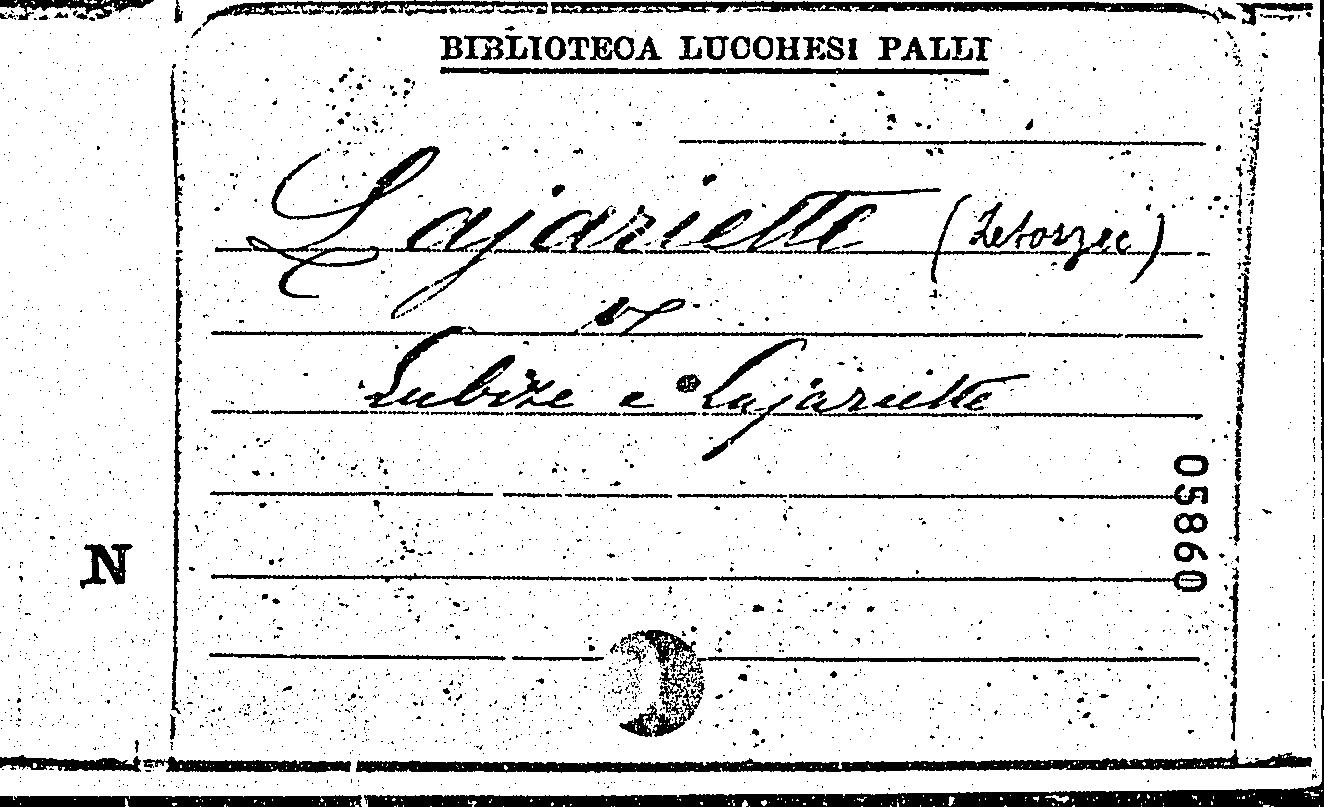 BIBLIOTECA LUCCHESI PALLI
Lajariette (Letorzec)
v
Lubize e Lajariette
05860
N